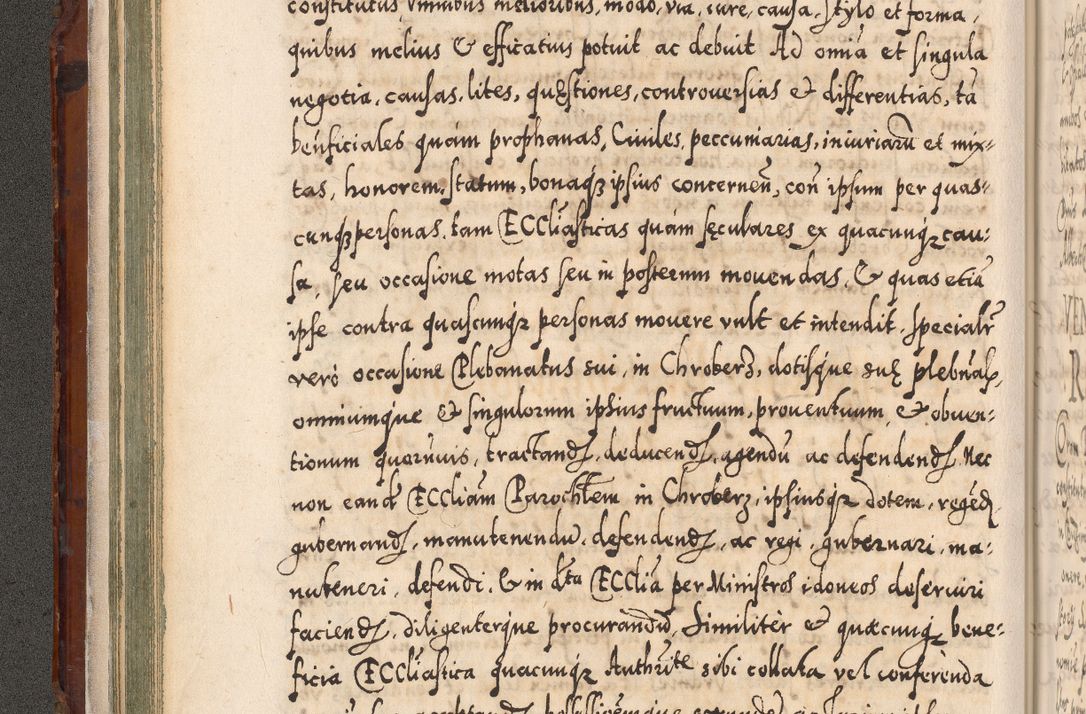 constitutus, omnibus melioribus, modo, via, iure, causa, stylo et forma,
quibus melius & efficatius potuit ac debuit Ad omia et singula
negotia, causas, lites, quęstiones, controuersias & differentias, tã
beñficiales quam prophanas, Ciuiles, peccuniarias, iniuriarũ et mix-
tas, honorem, statum, bonaqꝫ ipsius concerneñ, coñ ipsum per quas-
cunqꝫ personas, tam ECCliãsticas quam sęculares ex quacunqꝫ cau-
sa, seu occasione motas seu in posterum mouendas, & quas etiã
ipse contra quascunqꝫ personas mouere vult et intendit, specialr̃
verò occasione Plebanatus sui, in Chroberz, dotisque suę plebñal,
omniumque & singulorum ipsius fructuum, prouentuum, & obuen-
tionum quorũuis, tractanđ, deducenđ, agendũ ac defendenđ, Nec
non eanđ ECCliam Parochlem in Chroberz, ipsiusqꝫ dotem, regeđ,
gubernanđ, manutenendũ, defendenđ, ac regi, gubernari, ma-
nuteneri, defendi, & in dta ECClia per Ministros idoneos deseruiri
facienđ, diligenterque procurandũ, Similiter & quæcunqꝫ bene-
ficia ECCliãstica quacunqꝫ Authrite sibi collata vel conferenda